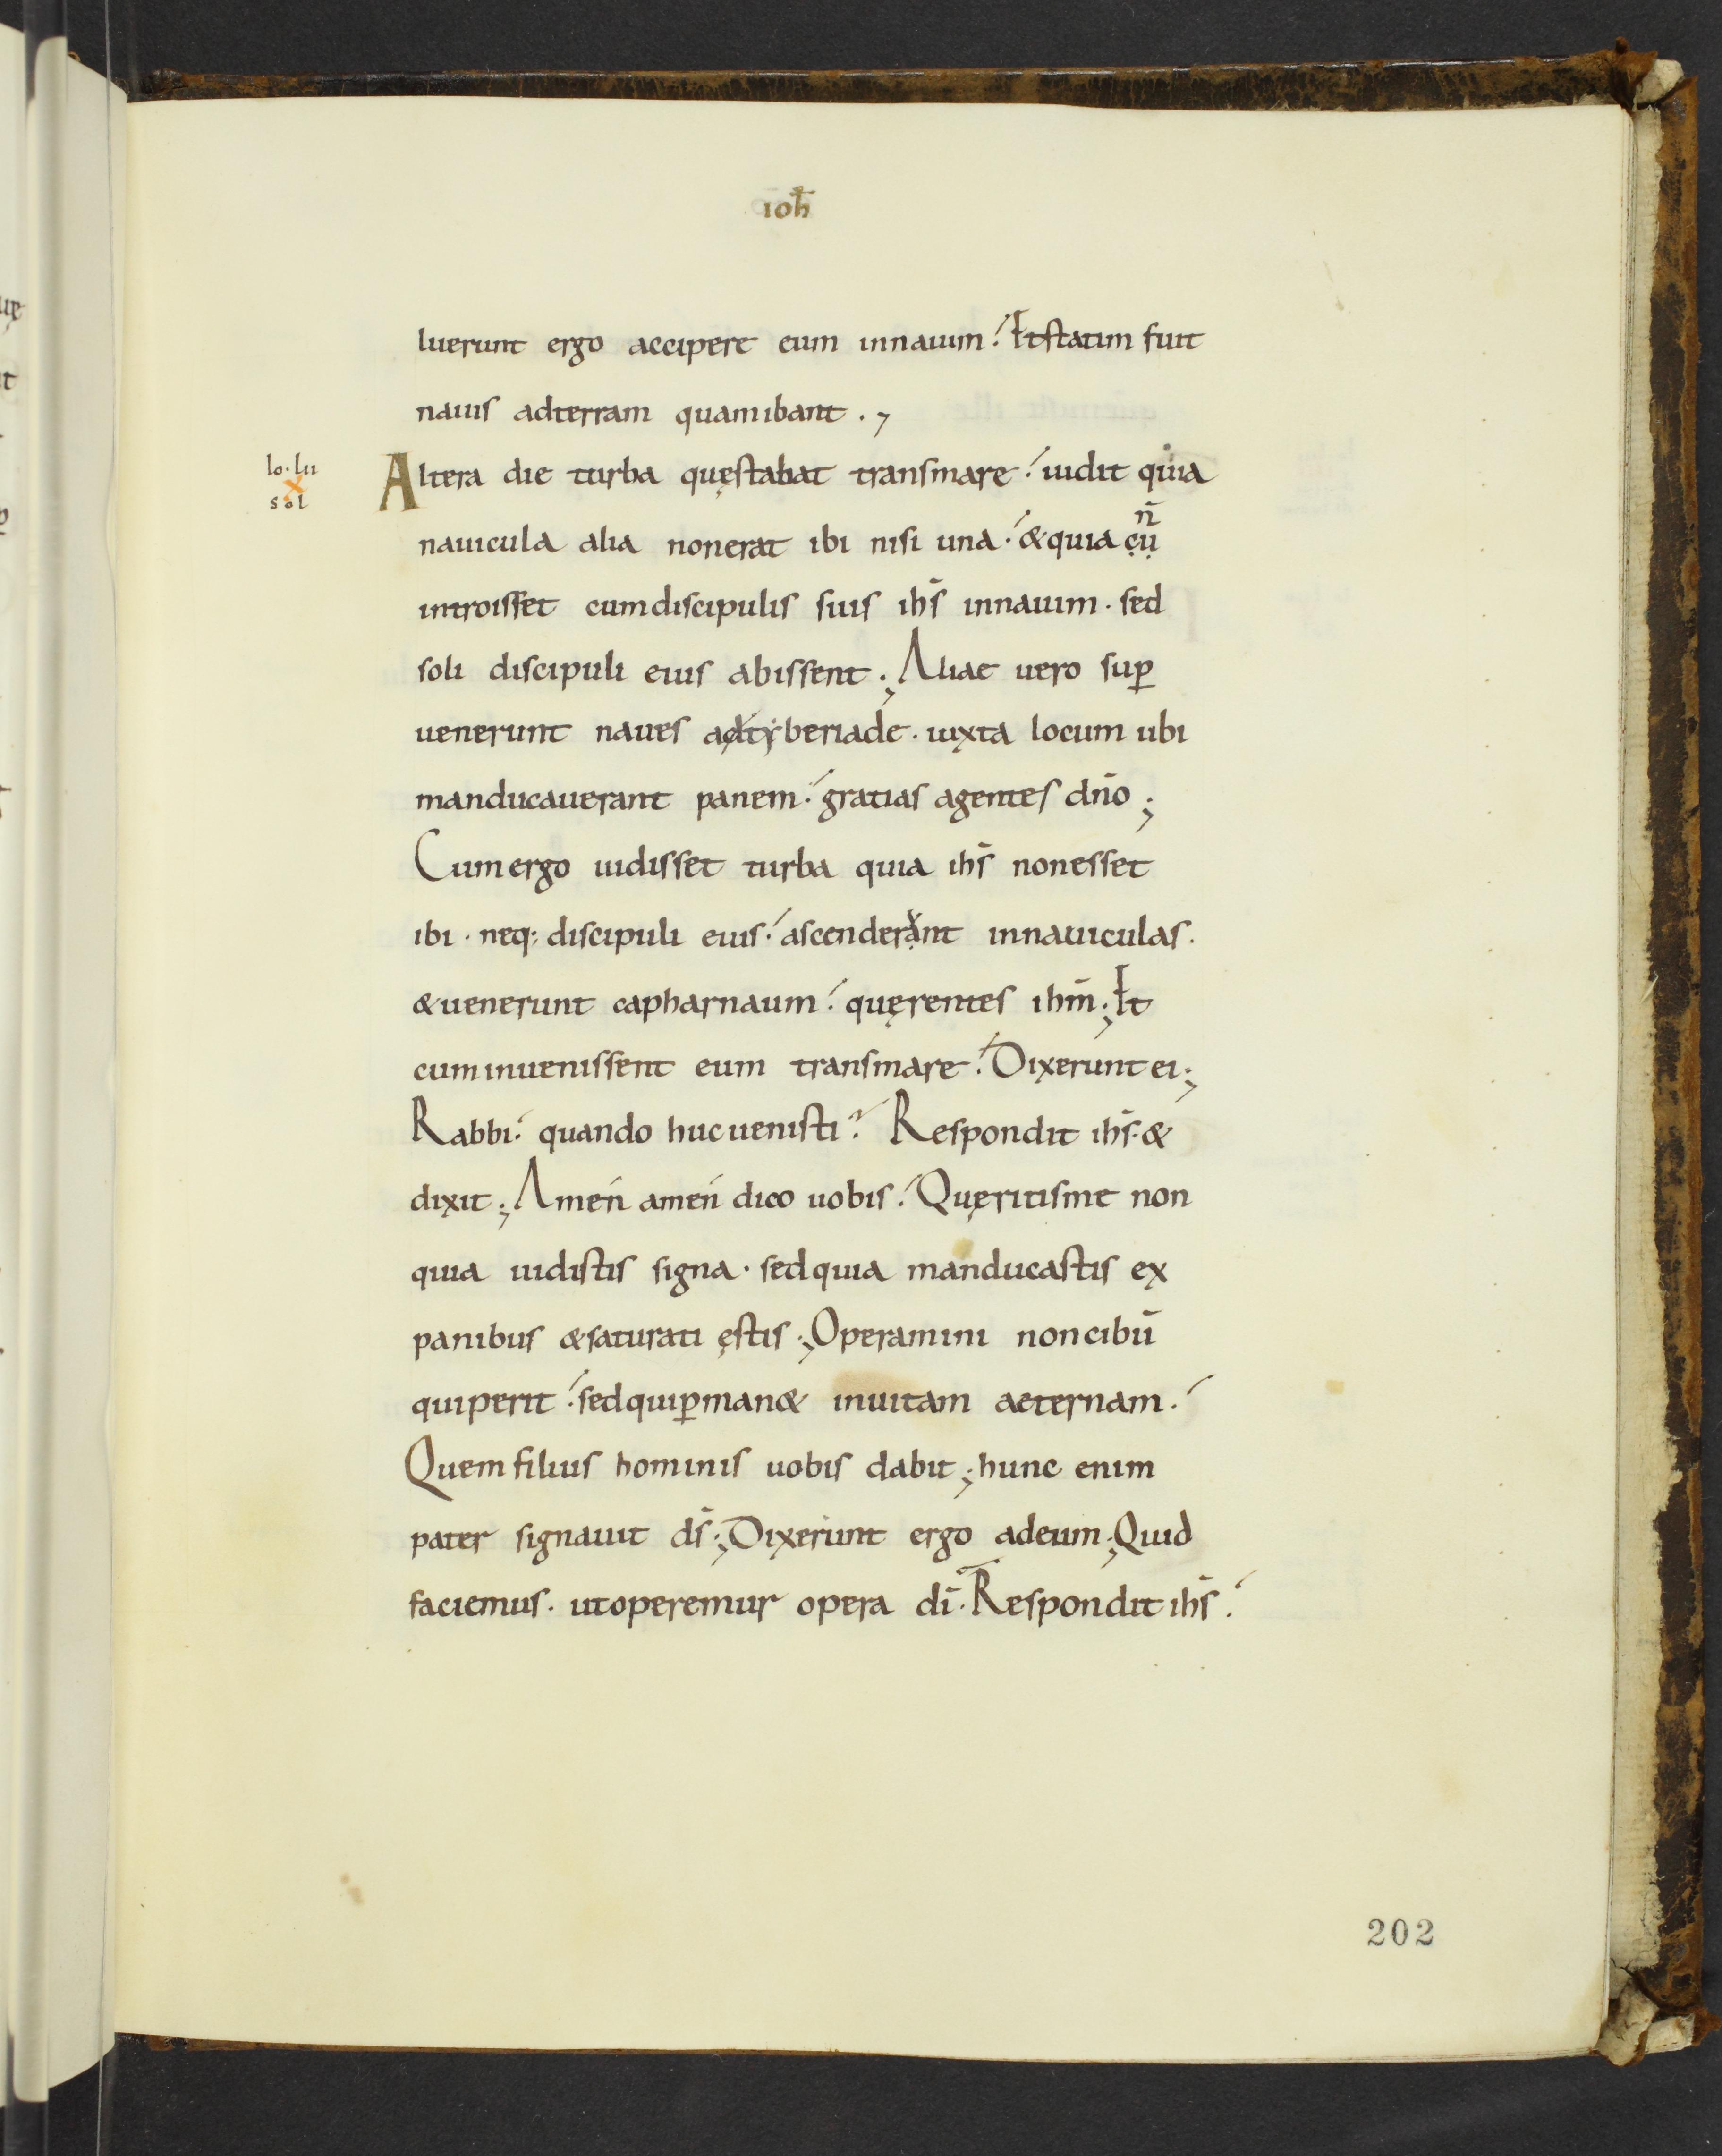 ioh̄
luerunt ergo accipere eum innauim. Etstatim fuit
nauis adterram quamibant .,
lo. lii
x
sol
Altera die turba quęstabat transmare. uidit quia
nauicula alia nonerat ibi nisi una. &quia cụ̄
n̄
introisset cumdiscipulis suis ihs̄ innauim. sed
soli discipuli eius abissent; Aliae uero suꝑ
uenerunt naues aḍtyberiade. iuxta locum ubi
manducauerant panem. gratias agentes dn̄o;
Cumergo uidisset turba quia ihs̄ nonesset
ibi. neq; discipuli eius. ascenderạnt innauiculas.
&uenerunt capharnaum. quęrentes ihm̄; Et
cuminuenissent eum transmare. Dixerunt ei;
Rabbi. quando hucuenisti? Respondit ihs̄. &
dixit; Amen amen dico uobis. Quęritisme non
quia uidistis signa. sedquia manducastis ex
panibus &saturati ęstis; Operamini noncibū
quiperit. sedquiꝑman& inuitam aeternam.
Quem filius hominis uobis dabit; hunc enim
pater signauit ds̄; Dixerunt ergo adeum; Quid
faciemus. utoperemur opera dī. Respondit ihs̄.
202